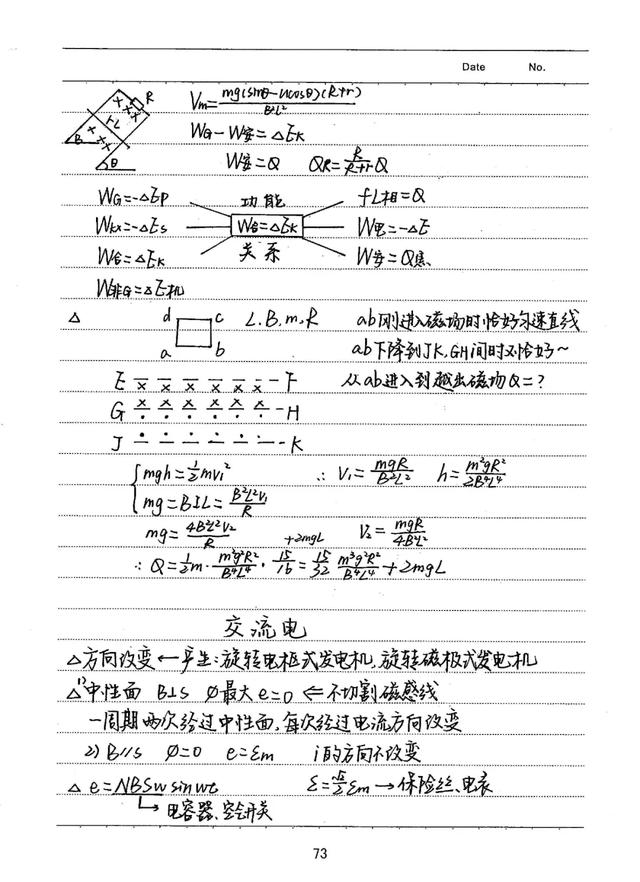 Date No.
R
B L
θ
Vm=mg(sinθ-ucosθ)(R+r)/B²L²
WG-W安=△EK
W安=Q QR=R/(R+r)Q
WG=-△EP 功能 fL相=Q
Wkx=-△Es W合=△EK W电=-△E
W合=△EK 关系 W安=Q焦
W非G=△E机
△ d c L.B.m.R ab刚进入磁场时恰好匀速直线
a b ab下降到JK,GH间时又恰好~
E × × × × × × F 从ab进入到越出磁场Q=?
G × × × × × × H
J · · · · · · K
mgh=½mv₁² ∴ V₁=mgR/B²L² h=m²gR²/2B⁴L⁴
mg=BIL=B²L²V₁/R
mg=4B²L²V₂/R V₂=mgR/4B²L²
+2mgL
∴ Q=½m·m²g²R²/B⁴L⁴·15/16=15/32 m³g²R²/B⁴L⁴+2mgL
交流电
△方向改变←产生:旋转电枢式发电机,旋转磁极式发电机
△ 1)中性面 B⊥S Φ最大 e=0 ⇐不切割磁感线
一周期两次经过中性面,每次经过电流方向改变
2) B//S Φ=0 e=εm i的方向不改变
△ e=NBSw sinwt ε=√2/2 εm→保险丝、电表
↳电容器、空气开关
73